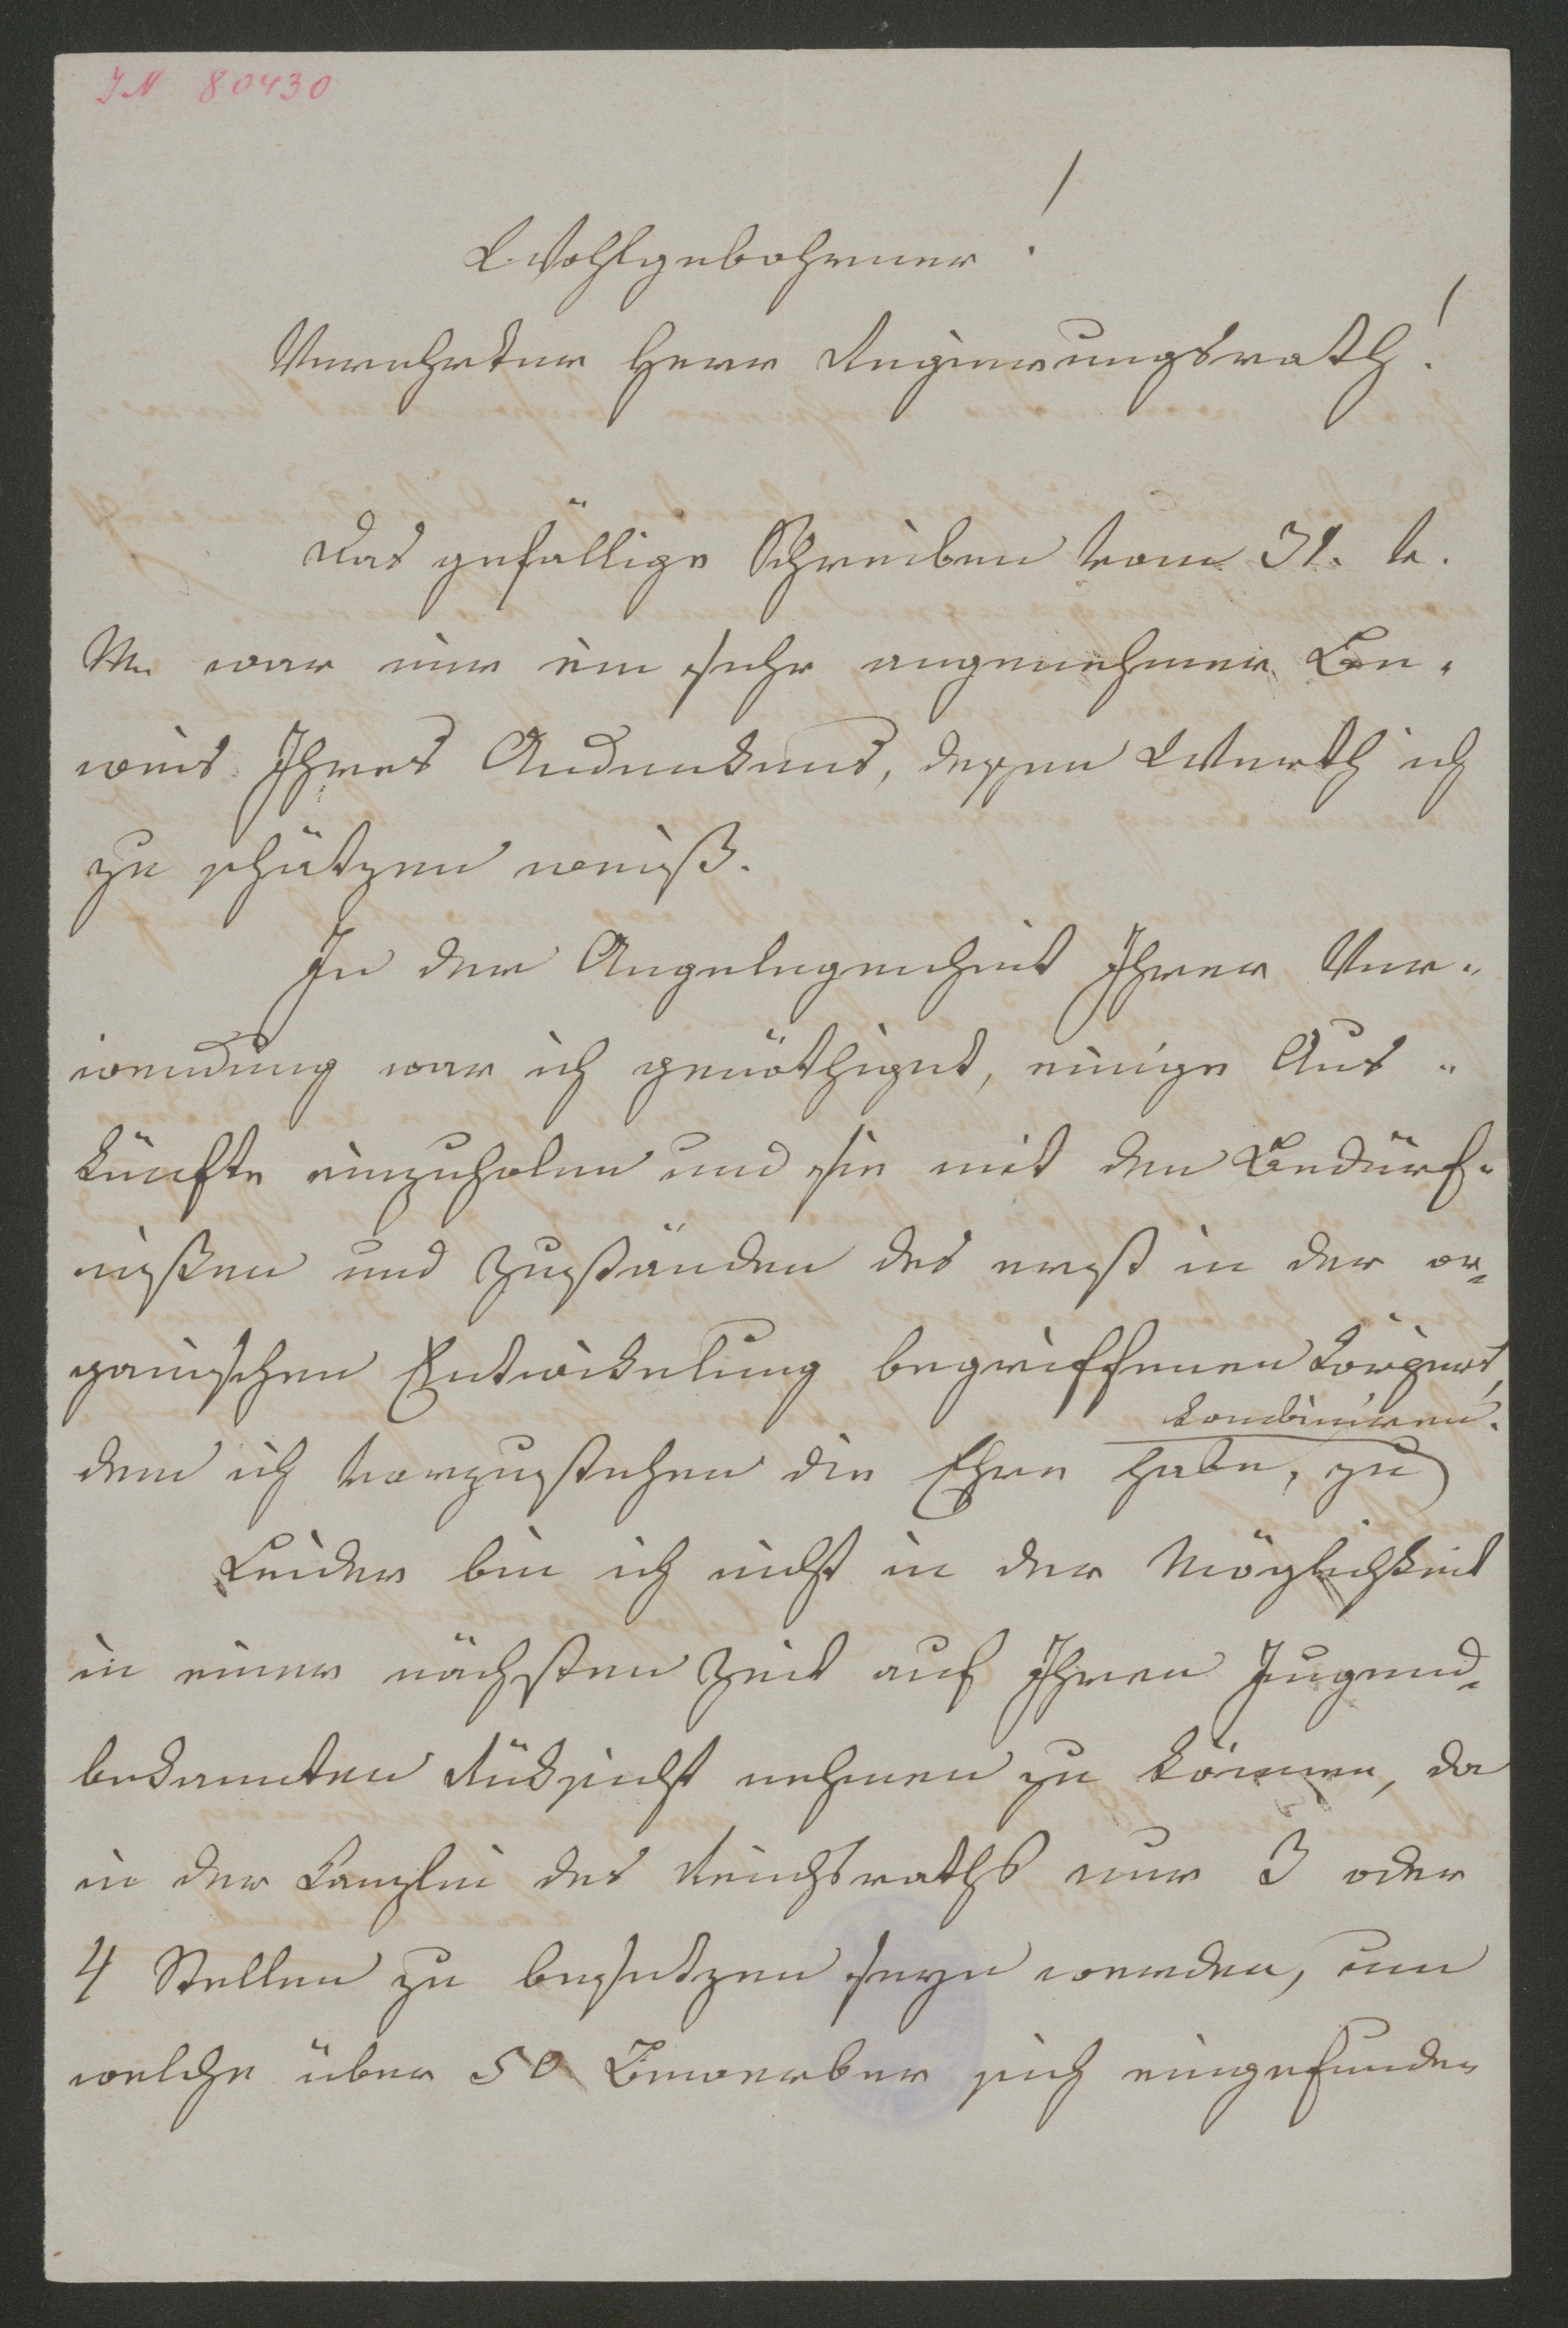 IN 80430
Wohlgebohrner!
Verehrter Herr Regierungsrath!
Das gefällige Schreiben vom 31. v.
M. war mir ein sehr angenehmer Be-
weis Ihres Andenkens, dessen Werth ich
zu schätzen weiß.
In der Angelegenheit Ihrer Ver-
wendung war ich genöthiget, einige Aus-
künfte einzuholen und sie mit den Bedürf-
nißen und Zuständen des erst in der or-
ganischen Entwickelung begriffenen Körpers,
dem ich vorzustehen die Ehre habe, zu
kombiniren.
Leider bin ich nicht in der Möglichkeit
in einer nächsten Zeit auf Ihren Jugend-
bekannten Rüksicht nehmen zu können, da
in der Kanzlei des Reichsraths nur 3 oder
4 Stellen zu besetzen seyn werden, um
welche über 50 Bewerber sich eingefunden